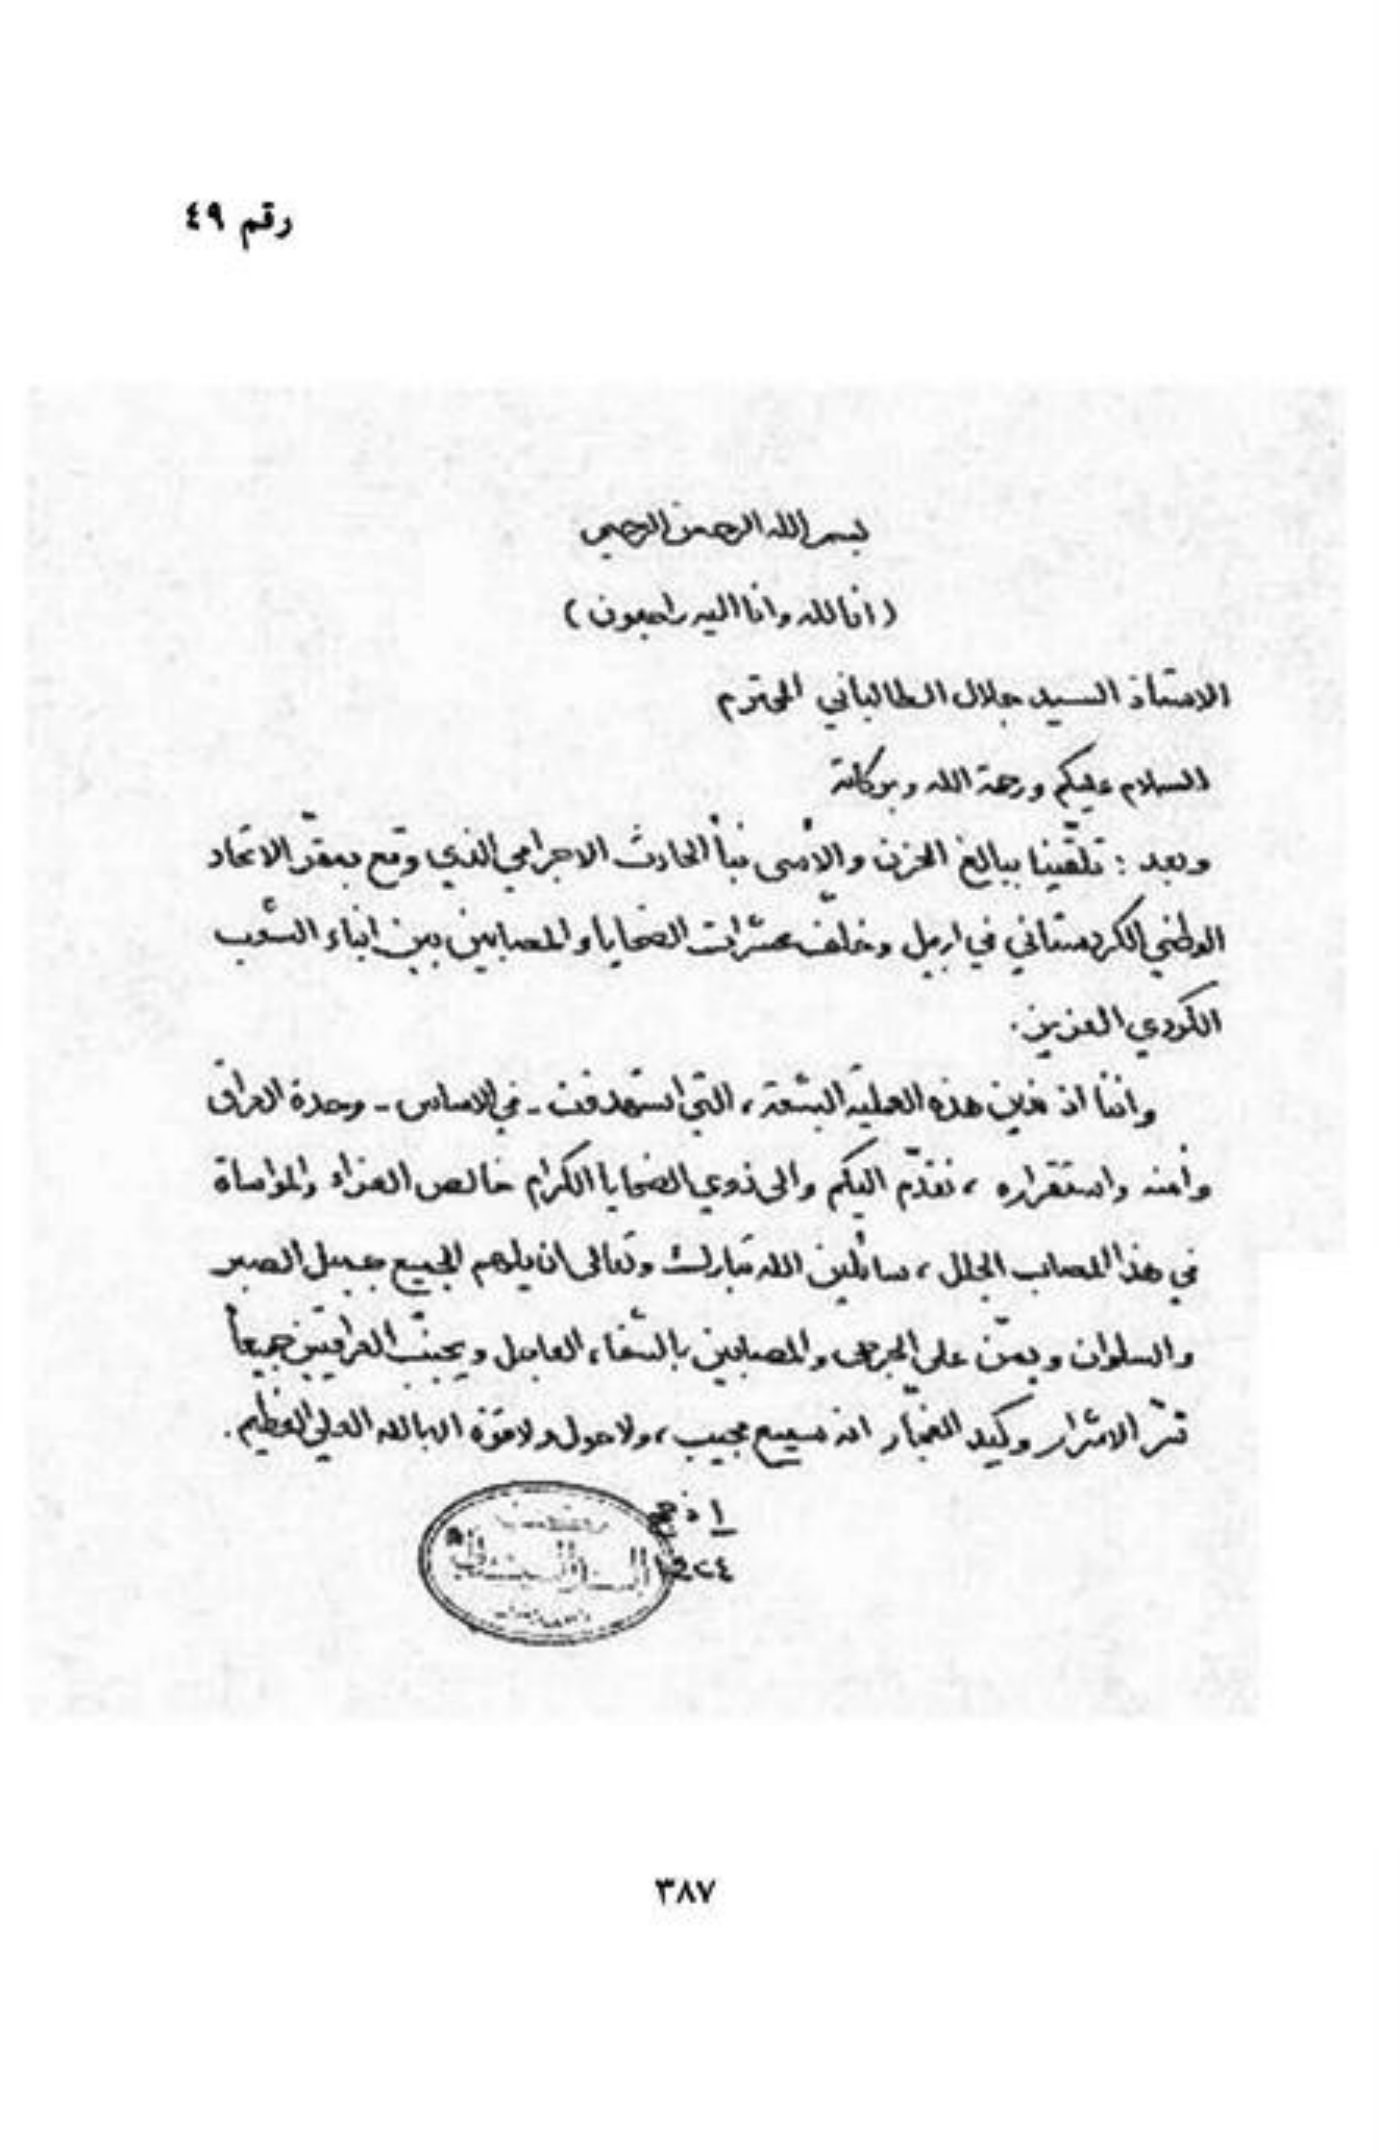 رقم ٤٩
بسم الله الرحمن الرحيم
(انا لله وانا اليه راجعون)
الاستاذ السيد جلال الطالباني المحترم
السلام عليكم ورحمة الله وبركاته
وبعد : تلقّينا ببالغ الحزن والأسى نبأ الحادث الاجرامي الذي وقع بمقرّ الاتحاد
الوطني الكردستاني في اربيل وخلّف عشرات الضحايا والمصابين بين ابناء الشعب
الكوردي العزيز.
واننا اذ ندين هذه العملية البشعة، التي استهدفت - في الاساس - وحدة العراق
وأمنه واستقراره ، نقدّم اليكم والى ذوي الضحايا الكرام خالص العزاء والمواساة
في هذا المصاب الجلل ، سائلين الله تبارك وتعالى ان يلهم الجميع جميل الصبر
والسلوان ويمنّ على الجرحى والمصابين بالشفاء العاجل ويجنّب العراقيين جميعاً
شرّ الاشرار وكيد الفجّار انه سميع مجيب، ولا حول ولا قوّة الا بالله العلي العظيم.
١٠ ذي ح
السيد السيستاني
٣٨٧